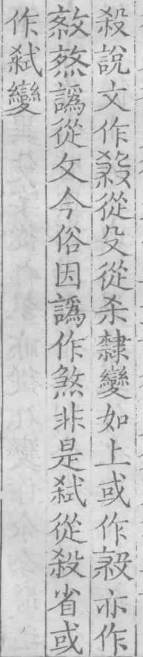 殺說文作𣪩從殳從杀隸變如上或作殺亦作
𢽅煞譌從攵今俗因譌作煞非是弑從殺省或
作弑變